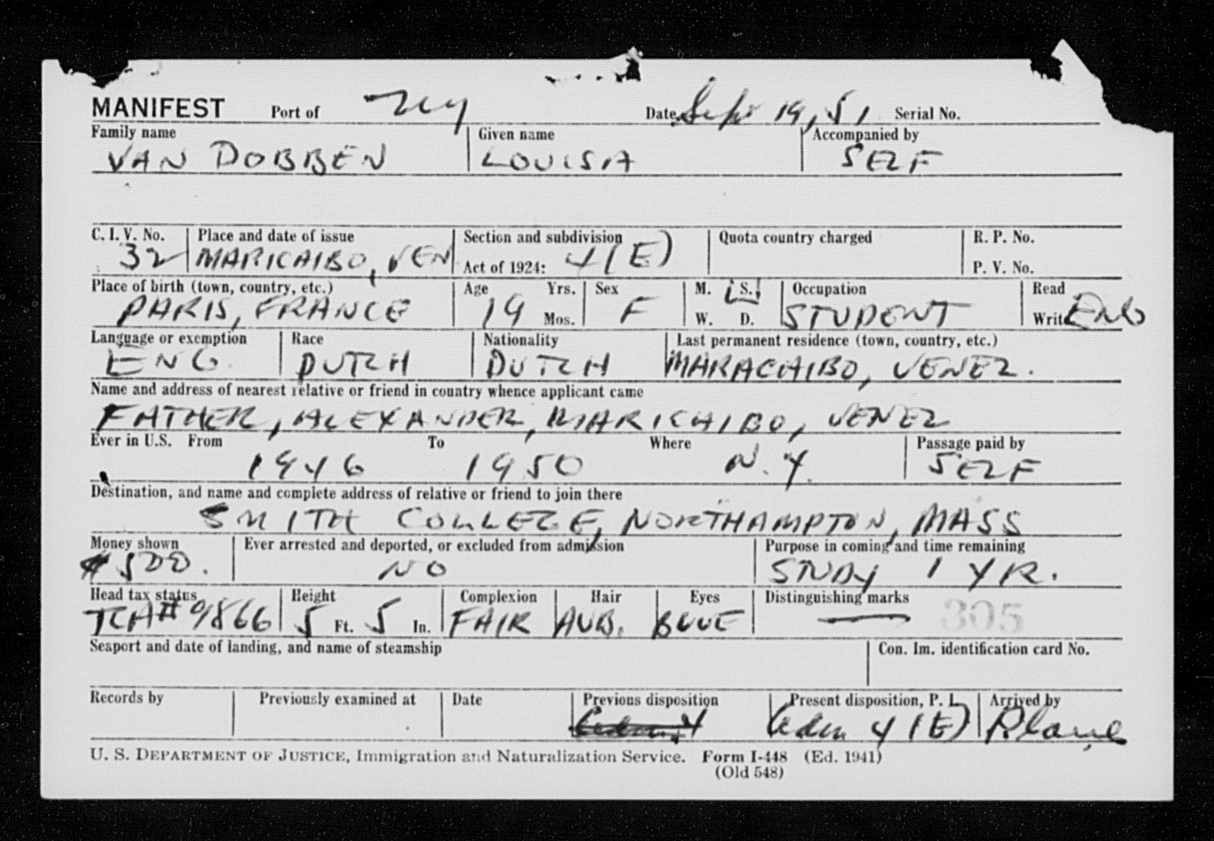 MANIFEST Port of NY Date Sept 19, 51 Serial No.
Family name Given name Accompanied by
VAN DOBBEN LOUISA SELF
C. I. V. No. Place and date of issue Section and subdivision Quota country charged R. P. No.
32 MARICAIBO, VEN Act of 1924: 4(E) P. V. No.
Place of birth (town, country, etc.) Age Yrs. Sex M. S. Occupation Read
PARIS, FRANCE 19 Mos. F W. D. STUDENT Write ENG
Language or exemption Race Nationality Last permanent residence (town, country, etc.)
ENG. DUTCH DUTCH MARACAIBO, VENEZ.
Name and address of nearest relative or friend in country whence applicant came
FATHER, ALEXANDER, MARICAIBO, VENEZ
Ever in U.S. From To Where Passage paid by
1946 1950 N.Y. SELF
Destination, and name and complete address of relative or friend to join there
SMITH COLLEGE, NORTHAMPTON, MASS
Money shown Ever arrested and deported, or excluded from admission Purpose in coming and time remaining
$500. NO STUDY 1 YR.
Head tax status Height Complexion Hair Eyes Distinguishing marks
TCA# 9866 5 Ft. 5 In. FAIR AUB. BLUE — 305
Seaport and date of landing, and name of steamship Con. Im. identification card No.
Records by Previously examined at Date Previous disposition Present disposition, P. I. Arrived by
Adm 4(E) Plane
U. S. DEPARTMENT OF JUSTICE, Immigration and Naturalization Service. Form I-448 (Ed. 1941)
(Old 548)